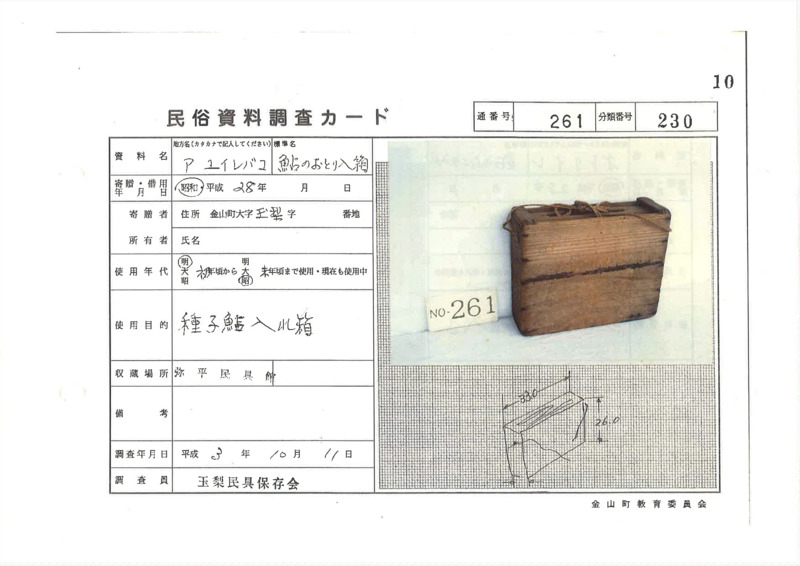 10
民俗資料調査カード
通番号 261 分類番号 230
地方名(カタカナで記入してください) 標準名
資料名 アユイレバコ 鮎のおとり入箱
寄贈・借用年月日 昭和・平成 28年 月 日
寄贈者 住所 金山町大字玉梨字 番地
所有者 氏名
使用年代 明大昭 初年頃から 明大昭 末年頃まで使用・現在も使用中
使用目的 種子鮎入れ箱
収蔵場所 弥平民具館
備考
調査年月日 平成 3年 10月 11日
調査員 玉梨民具保存会
NO-261
330
26.0
金山町教育委員会